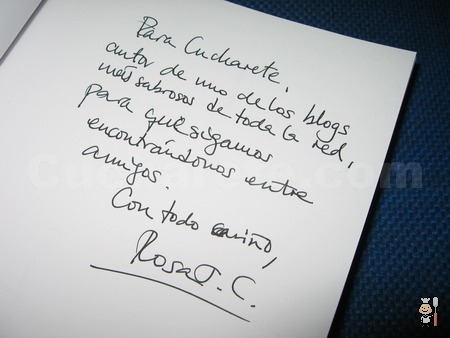 Para Cucharete,
autor de uno de los blogs
más sabrosos de toda la red,
para que sigamos
encontrándonos entre
amigos.
Con todo cariño,
Rosa T. C.
Cucharete.com